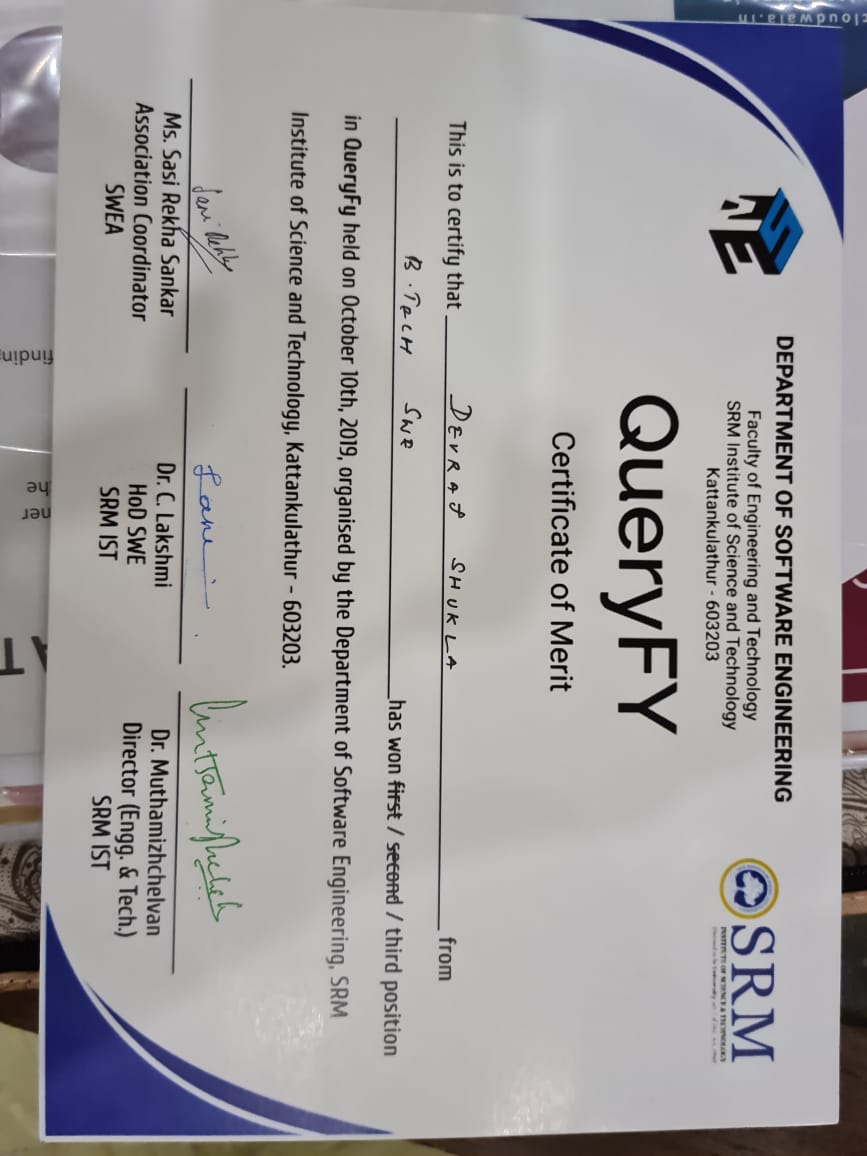 SWE
DEPARTMENT OF SOFTWARE ENGINEERING
Faculty of Engineering and Technology
SRM Institute of Science and Technology
Kattankulathur - 603203
SRM
INSTITUTE OF SCIENCE & TECHNOLOGY
QueryFY
Certificate of Merit
This is to certify that DEVRAJ SHUKLA from
B.TECH SWE has won first / second / third position
in QueryFy held on October 10th, 2019, organised by the Department of Software Engineering, SRM
Institute of Science and Technology, Kattankulathur - 603203.
Ms. Sasi Rekha Sankar
Association Coordinator
SWEA
Dr. C. Lakshmi
HoD SWE
SRM IST
Dr. Muthamizhchelvan
Director (Engg. & Tech.)
SRM IST
cloudwala.in
finding